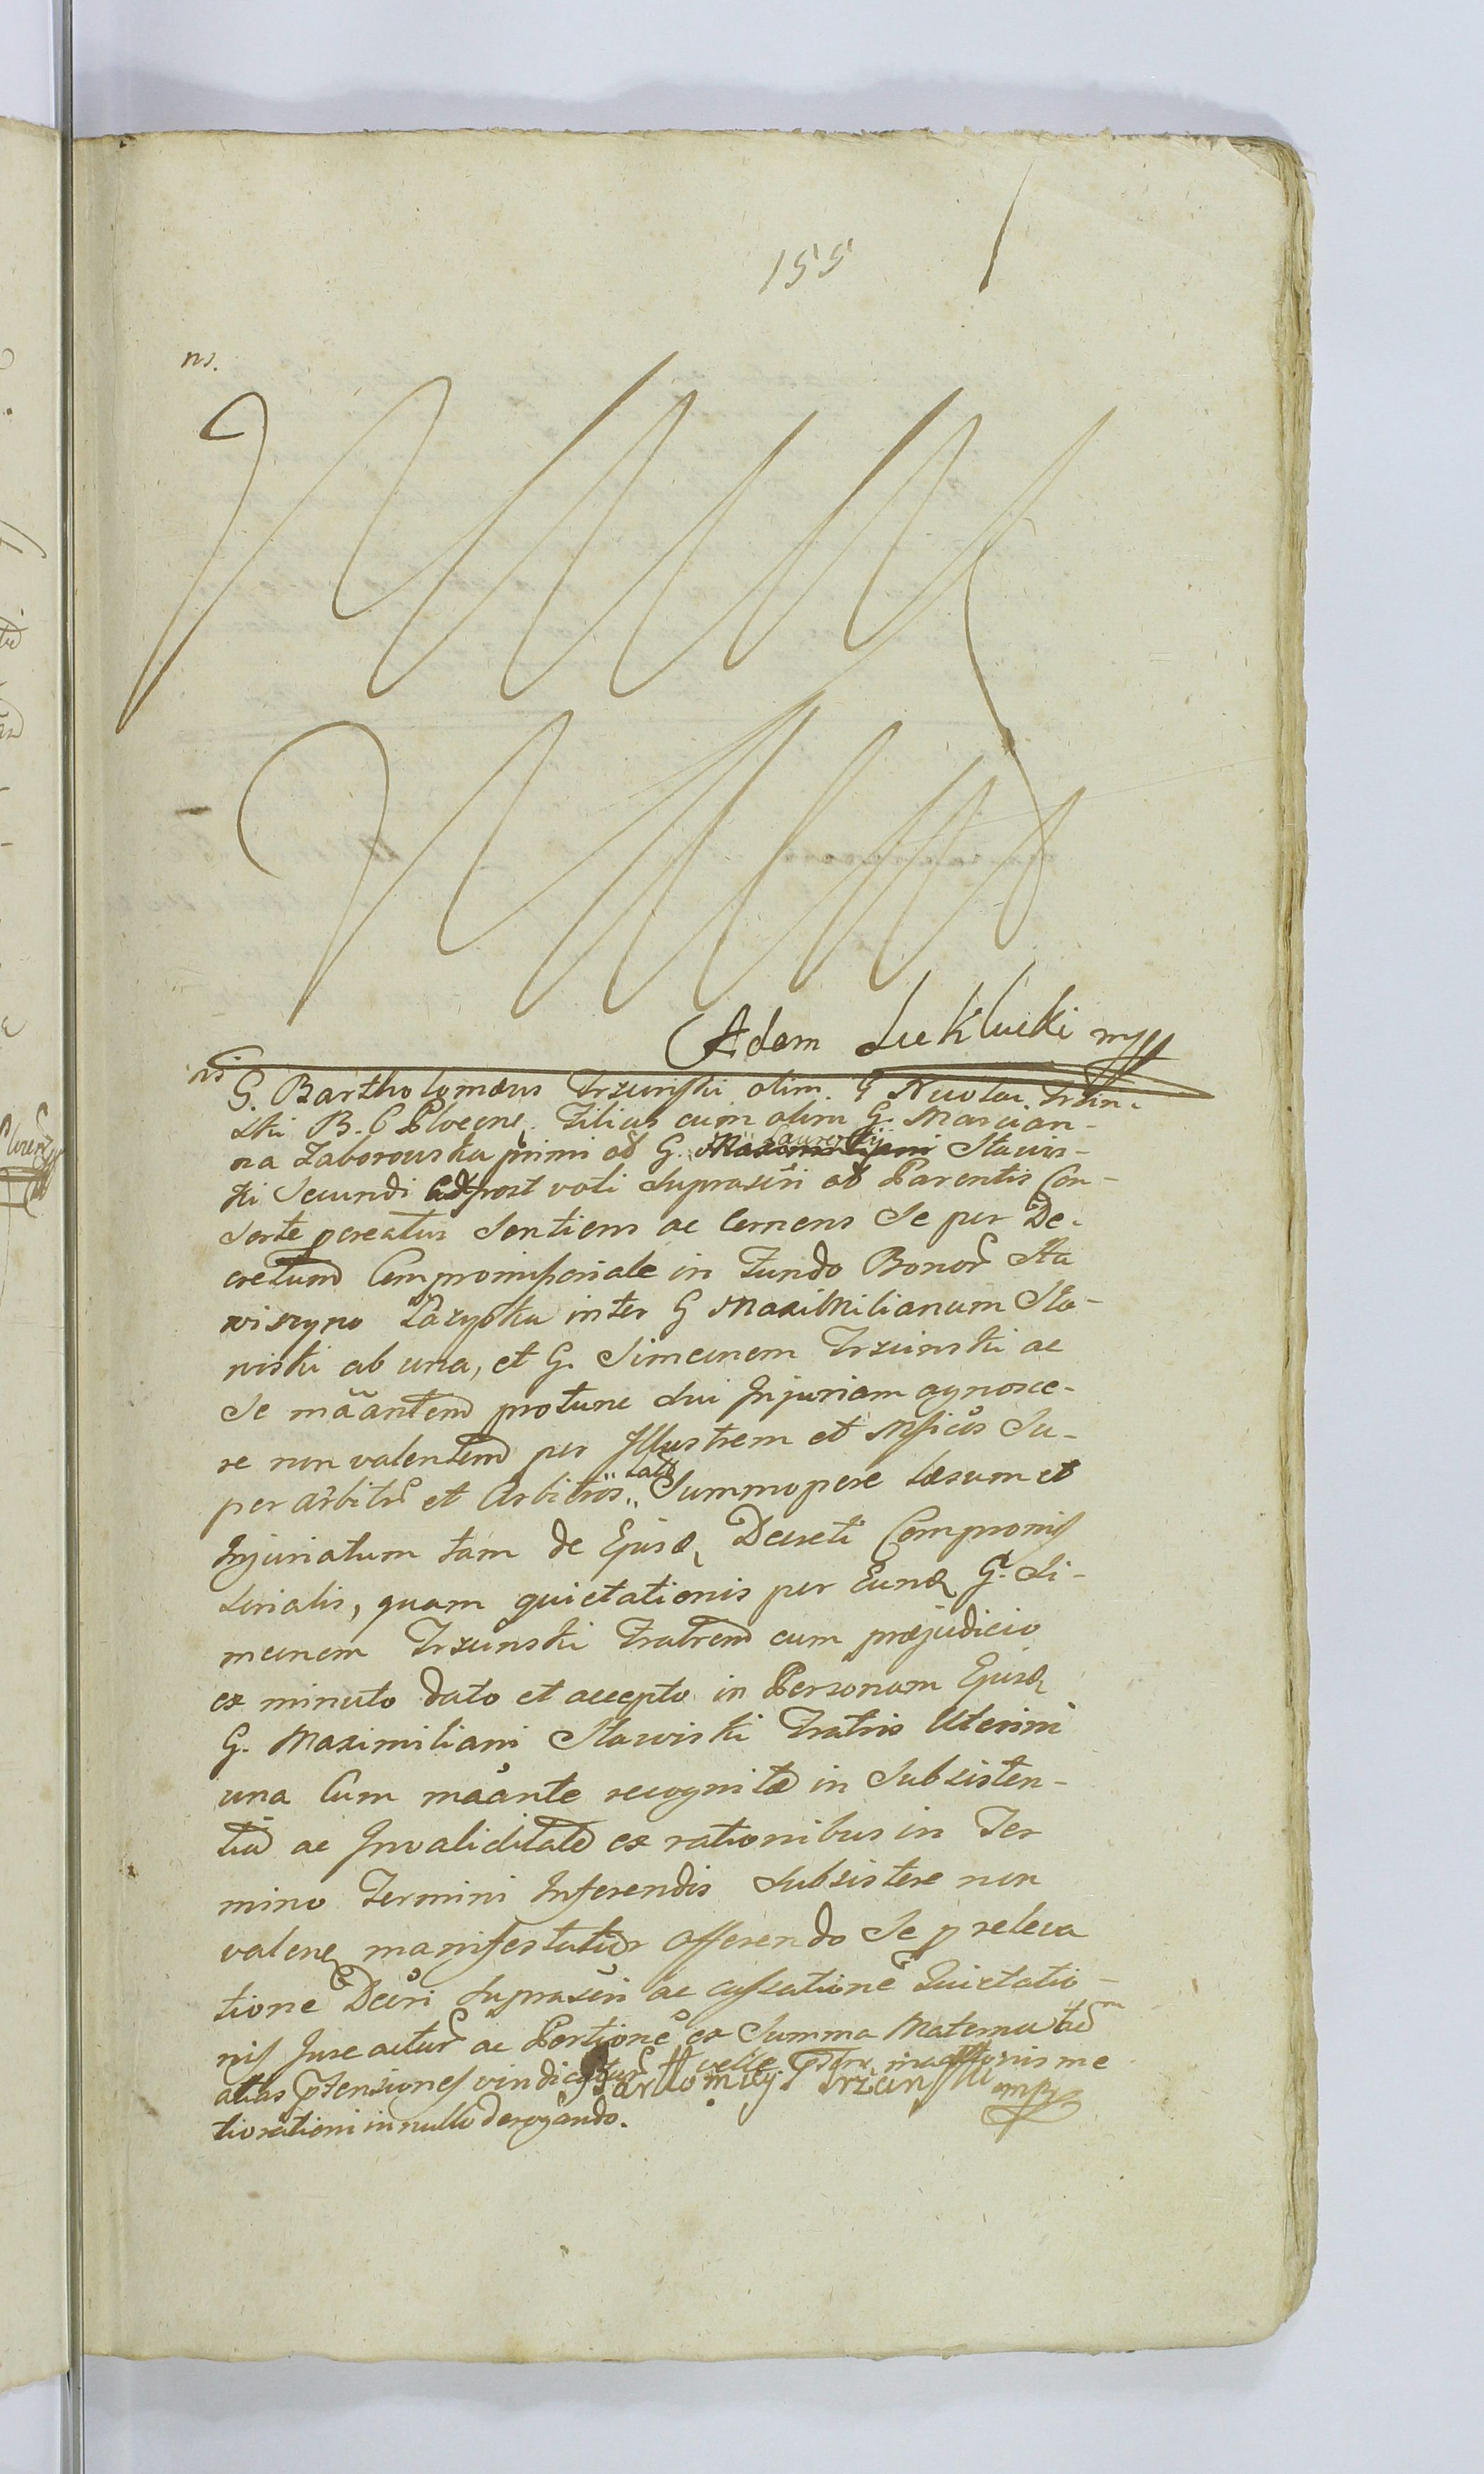 155
ns.
Adam Lu Kłucki mpp
ns
G. Bartholomæus Trzciński olim. G Nicolai Trzcin-
ski B. C Plocens. Filius cum olim G. Marcian-
na Zaborowska primi ad G. Laurentij Stawis-
ki Secundi post voti Suprascri ad Parentis Con-
sorte gereatus Sentiens ac Cernens Se per De-
cretum Compromissoriale in Fundo Bonor Sta
wiszyno Łazyska inter G Maximilianum Sta-
wiski ab una, et G. Simeonem Trzcinski ac
Se mãantem protunc Sui Injuriam agnosce-
re non valentem per Illustrem et Mficos Su-
per arbitr et Arbitros latu Summopere læsum et
Injuriatum tam de Ejusd Decreti Compromis
sorialis, quam quietationis per Eund G. Si-
meonem Trzcinski Fratrem cum præjudicio
ex minuto dato et accepto in Personam Ejusd
G. Maximiliani Stawiski Fratris Uterini
una Cum mãante recognitæ in Subsisten-
tia ac Invaliditate ex rationibus in Ter
mino Termini Inferendis Subsistere non
valens manifestatur offerendo Se p releva
tione Decri Suprascri ac cassatione Quietatio-
nis Jure actur ac Portione ex Summa Materna tm
alias ptensiones vindicatur velle me
liorationi in nullo derogando.
Bartłomiey Trzcinski mpp